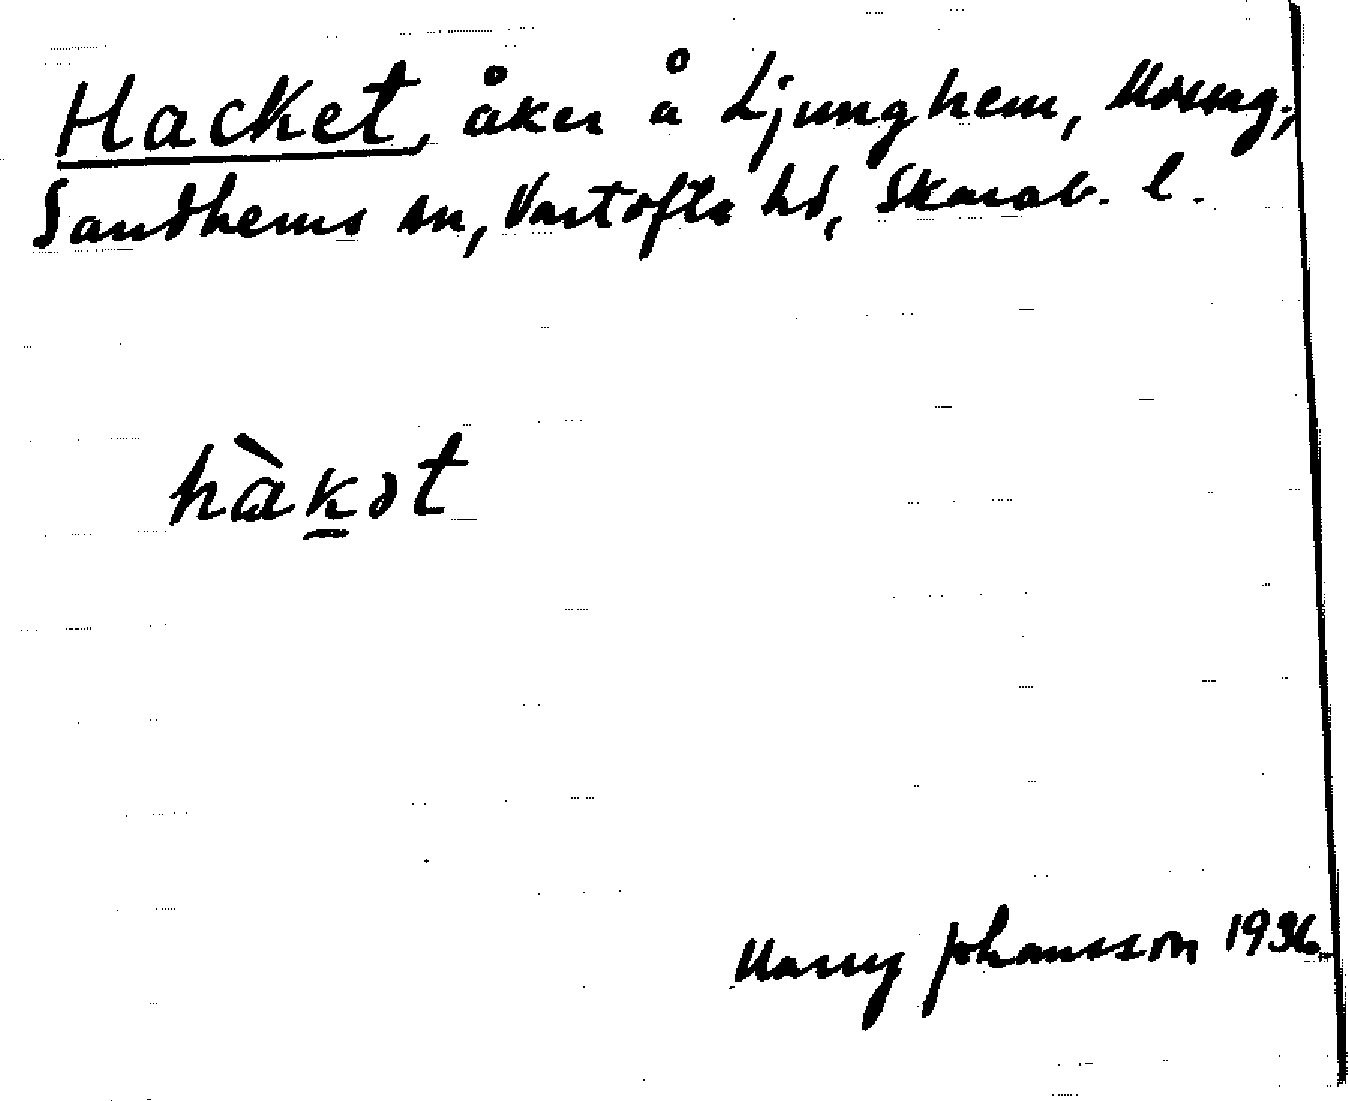 Hacket, åker å Ljunghem, Mössag.,
Sandhems sn, Vartofta hd, Skarab. l.
hàk̲ət
Harry Johansson 1936.